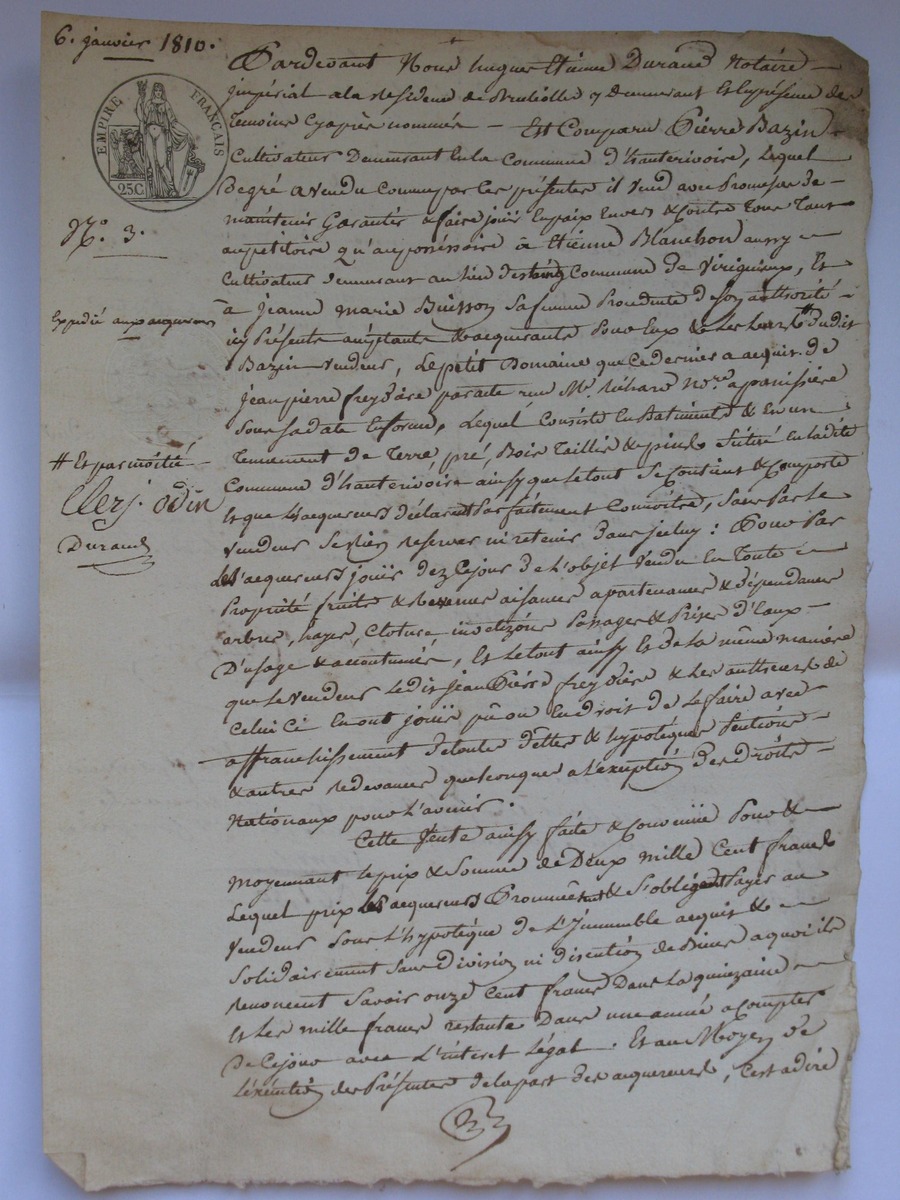 6. janvier 1810.
EMPIRE FRANÇAIS
25C.
N.o 3.
Expedié aux acquereurs
# Et par moitié
Clerj. odin
Durand
Pardevant Nous hugues Etienne Durand Notaire
jmpérial ala Residence de y Demeurant Et En présence des
temoins Cy après nommés – Est Comparu Pierre Bazin
Cultivateur Demeurant En la Commune d'hauterivoire, Lequel
De gré a vendu Comme par les présentes il vend avec Promesse de
maintenir Garantir & faire jouir En paix Envers & Contre tous Tant
au petitoire qu'au possessoire à Etienne Blanchon aussy
Cultivateur demeurant au lieu des Commune de Virigneux, Et
à Jeanne Marie Buisson Sa femme Procedente de son authorité
icy Présents acceptants & acquerants Pour Eux & les leurs # dudit
Bazin vendeur, Le petit Domaine que ce dernier a acquis de
jean pierre freydière par acte reçu Me. No.re a panissière
Sous sa date En forme, Lequel Consiste En Batiments & En un
Tenement de Terre, pré, Bois Taillis & pins Situé En ladite
Commune d'hauterivoire ainsy que le tout Se Contient & Comporte
Et que les acquereurs déclarent Parfaitement Connoitre, Sans Par le
vendeur Se Rien reserver ni retenir Dans jceluy : Pour Par
les acquereurs jouir dez Ce jour de L'objet vendu En Toute
Propriété fruits & Revenus aisances apartenances & dépendances
arbres, hayes, Cloture, Passages & Prises d'Eaux
D'usage & accoutumés, Et le tout ainsy Et de la même manière
que le vendeur Ledit Jean Pierre freydière & les autheurs de
Celui Ci En ont jouis pû ou En droit de le faire avec
affranchissement de toutes dettes & hypotéques Pentions
& autres redevances quelconques a L'exeption des droits
Nationaux pour l'avenir.
Cette Vente ainsy faite & Convenüe Pour &
moyennant le prix & Somme de Deux mille Cent francs
Lequel prix les acquereurs Promettent & S'obligent Payer au
vendeur Sous L'hypotéque de L'Immeuble acquis &
Solidairement Sans division ni discution de Biens a quoi ils
renoncent Savoir onze Cent francs Dans la quinzaine
Et les mille francs restants Dans une année a Compter
De Ce jour avec L'interet Légal. Et au Moyen de
L'exécution des Présentes de la part des acquereurs, C'est a dire